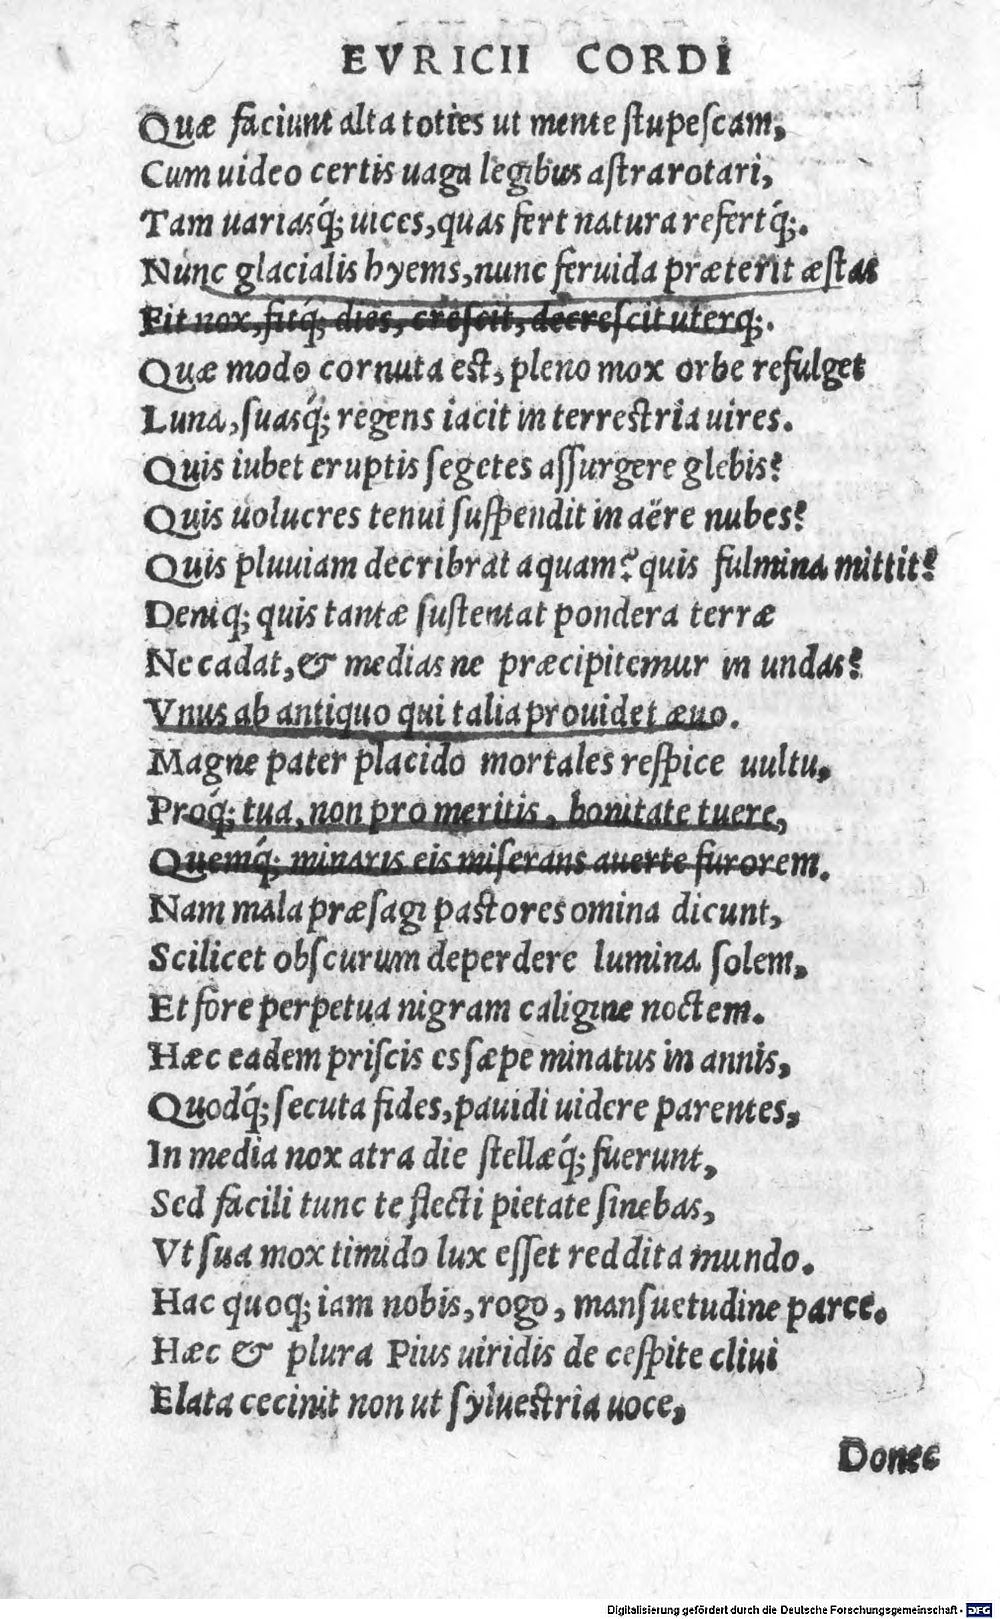 EVRICII CORDI
Quæ faciunt alta toties ut mente ſtupeſcam,
Cum uideo certis uaga legibus aſtra rotari,
Tam uariasq́; uices, quas fert natura refertq́;.
Nunc glacialis hyems, nunc feruida præterit æſtas
Fit nox, fitq́; dies, creſcit, decreſcit uterq;.
Quæ modo cornuta eſt, pleno mox orbe refulget
Luna, ſuasq́; regens iacit in terreſtria uires.
Quis iubet eruptis ſegetes aſſurgere glebis?
Quis uolucres tenui ſuſpendit in aëre nubes?
Quis pluuiam decribrat aquam? quis fulmina mittit?
Deniq; quis tantæ ſuſtentat pondera terræ
Ne cadat, & medias ne præcipitemur in undas?
Vnus ab antiquo qui talia prouidet æuo.
Magne pater placido mortales reſpice uultu,
Proq́; tua, non pro meritis, bonitate tuere,
Quemq́; minaris eis miſerans auerte furorem.
Nam mala præſagi paſtores omina dicunt,
Scilicet obſcurum deperdere lumina ſolem,
Et fore perpetua nigram caligine noctem.
Hæc eadem priſcis es ſæpe minatus in annis,
Quodq́; ſecuta fides, pauidi uidere parentes,
In media nox atra die ſtellæq́; fuerunt,
Sed facili tunc te flecti pietate ſinebas,
Vt ſua mox timido lux eſſet reddita mundo.
Hac quoq; iam nobis, rogo, manſuetudine parce.
Hæc & plura Pius uiridis de ceſpite cliui
Elata cecinit non ut ſylueſtria uoce,
Donec
Digitalisierung gefördert durch die Deutsche Forschungsgemeinschaft - DFG